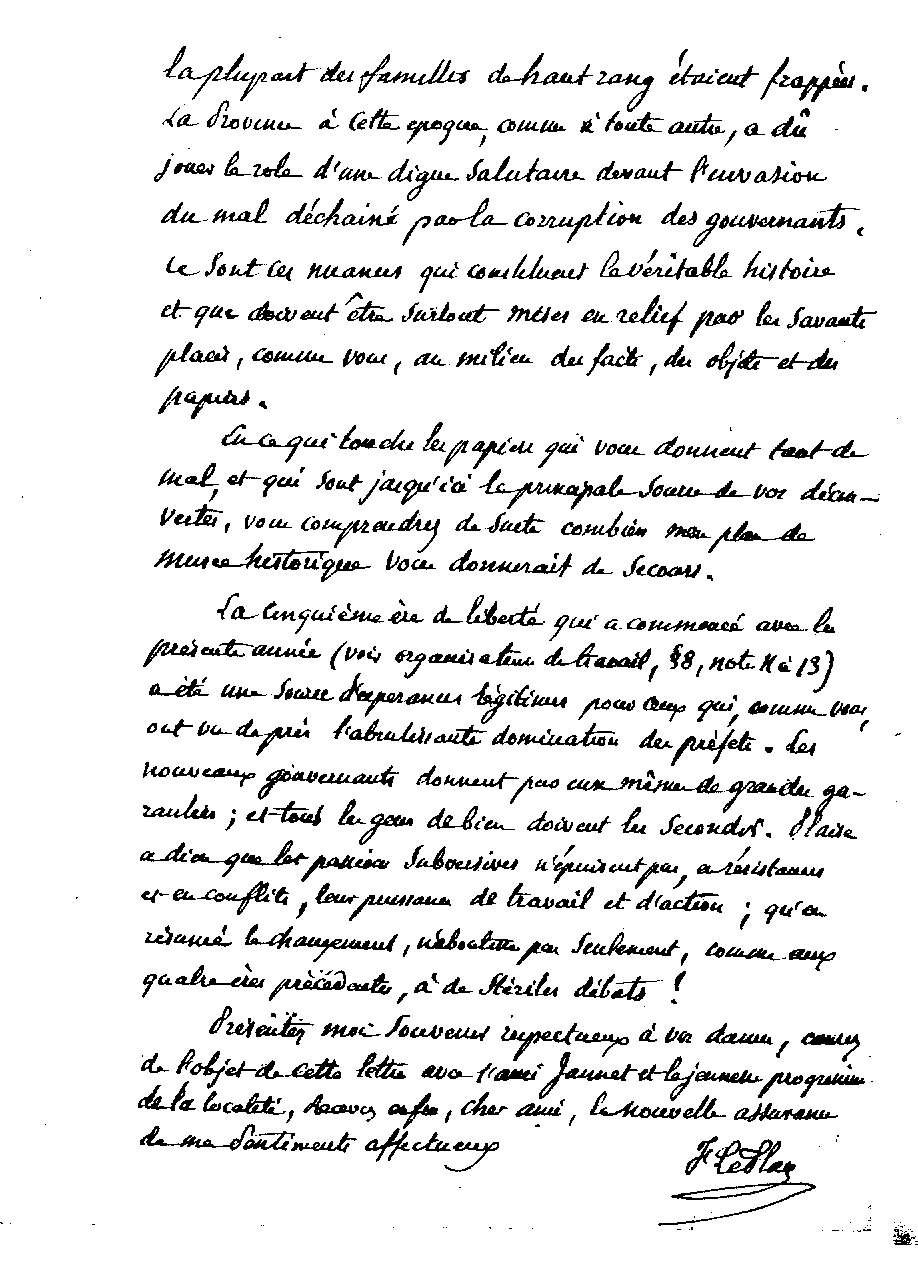 la plupart des familles de haut rang étaient frappées.
La Province à cette epoque, comme à toute autre, a dû
jouer le role d'une digue salutaire devant l'invasion
du mal déchainé par la corruption des gouvernants.
Ce sont ces nuances qui constituent la véritable histoire
et que doivent être surtout mises en relief par les savants
placés, comme vous, au milieu des faits, des objets et des
papiers.
En ce qui touche les papiers qui vous donnent tant de
mal, et qui sont jusqu'ici la principale source de vos décou-
vertes, vous comprendrez de suite combien mon plan de
musée historique vous donnerait de secours.
La cinquième ère de liberté qui a commencé avec la
présente année (voir organisation du travail, §8, note 11 à 13)
a été une source d'esperances légitimes pour ceux qui, comme vous,
ont vu de près l'abrutissante domination des préfets. Les
nouveaux gouvernants donnent par eux mêmes de grandes ga-
ranties ; et tous les gens de bien doivent les seconder. Plaise
a dieu que les passions subversives n'épuisent pas, en résistances
et en conflits, leur puissance de travail et d'action ; qu'en
résumé le changement, n'aboutisse pas seulement, comme aux
quatre ères précédentes, à de stériles débats !
Présentez mes souvenirs respectueux à vos dames, causez
de l'objet de cette lettre avec l'ami Jannet et la jeunesse
de la localité, Recevez enfin, cher ami, la nouvelle assurance
de mes sentiments affectueux
F LePlay